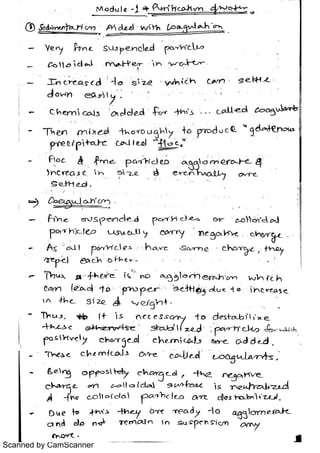 Module - 1 → Purification of Water
① Sedimentation Aided with Coagulation.
- Very fine suspended particles
- Colloidal matter in water.
- Increased to size which can settle
down easily.
- Chemicals added for this ... called coagulants
- Then mixed thoroughly to produce "gelatenous
precipitate called "floc."
- Floc & fine particles agglomerate &
increase in size & eventually are
settled.
⇒ Coagulation
- Fine suspended particles or colloidal
particles usually carry negative charge.
- As all particles have same charge, they
repel each other.
- Thus, there is no agglomeration which
can lead to proper settling due to increase
in the size & weight.
- Thus, it is necessary to destabilize
these otherwise stabilized particles for which
positively charged chemicals are added.
- These chemicals are called coagulants,
- Being oppositely charged, the negative
charge on colloidal surface is neutralized
& the colloidal particles are destabilized.
- Due to this they are ready to agglomerate
and do not remain in suspension any
more.
Scanned by CamScanner